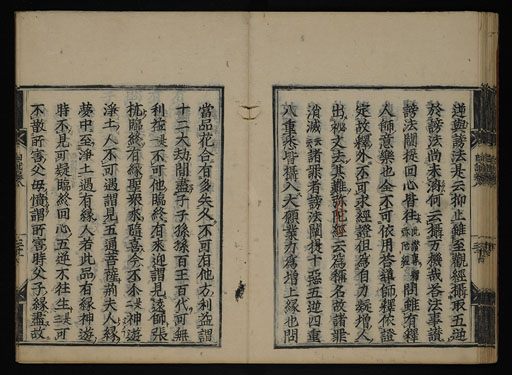 逆與謗法是云抑止雖至觀經攝取五逆
於謗法尚未消何云攝万機哉答法事讚
謗法闡提回心皆往
問雖有釋
人師意樂也全不可依用答講師釋依證
定故釋外不可求經證但為自力疑增人
出秘文去其難弥陀經云為稱名故諸罪
消滅云諸罪者謗法闡提十惡五逆四重
八重悉皆攝入大願業力為增上緣也問
當品花合有多失久不可有他方利益謂
十二大劫間盡子子孫孫百王百代可無
利益是不可他臨終有來迎謂見遠師張
抗臨終有緣聖眾水臨喜今不來是神遊
淨土人不可過謂見五通菩薩荊夫人緣
夢中至淨土過有緣人若此品有緣神遊
時不見可疑臨終回心五逆不往生是可
不散所害父母憤謂所害時父子緣盡故